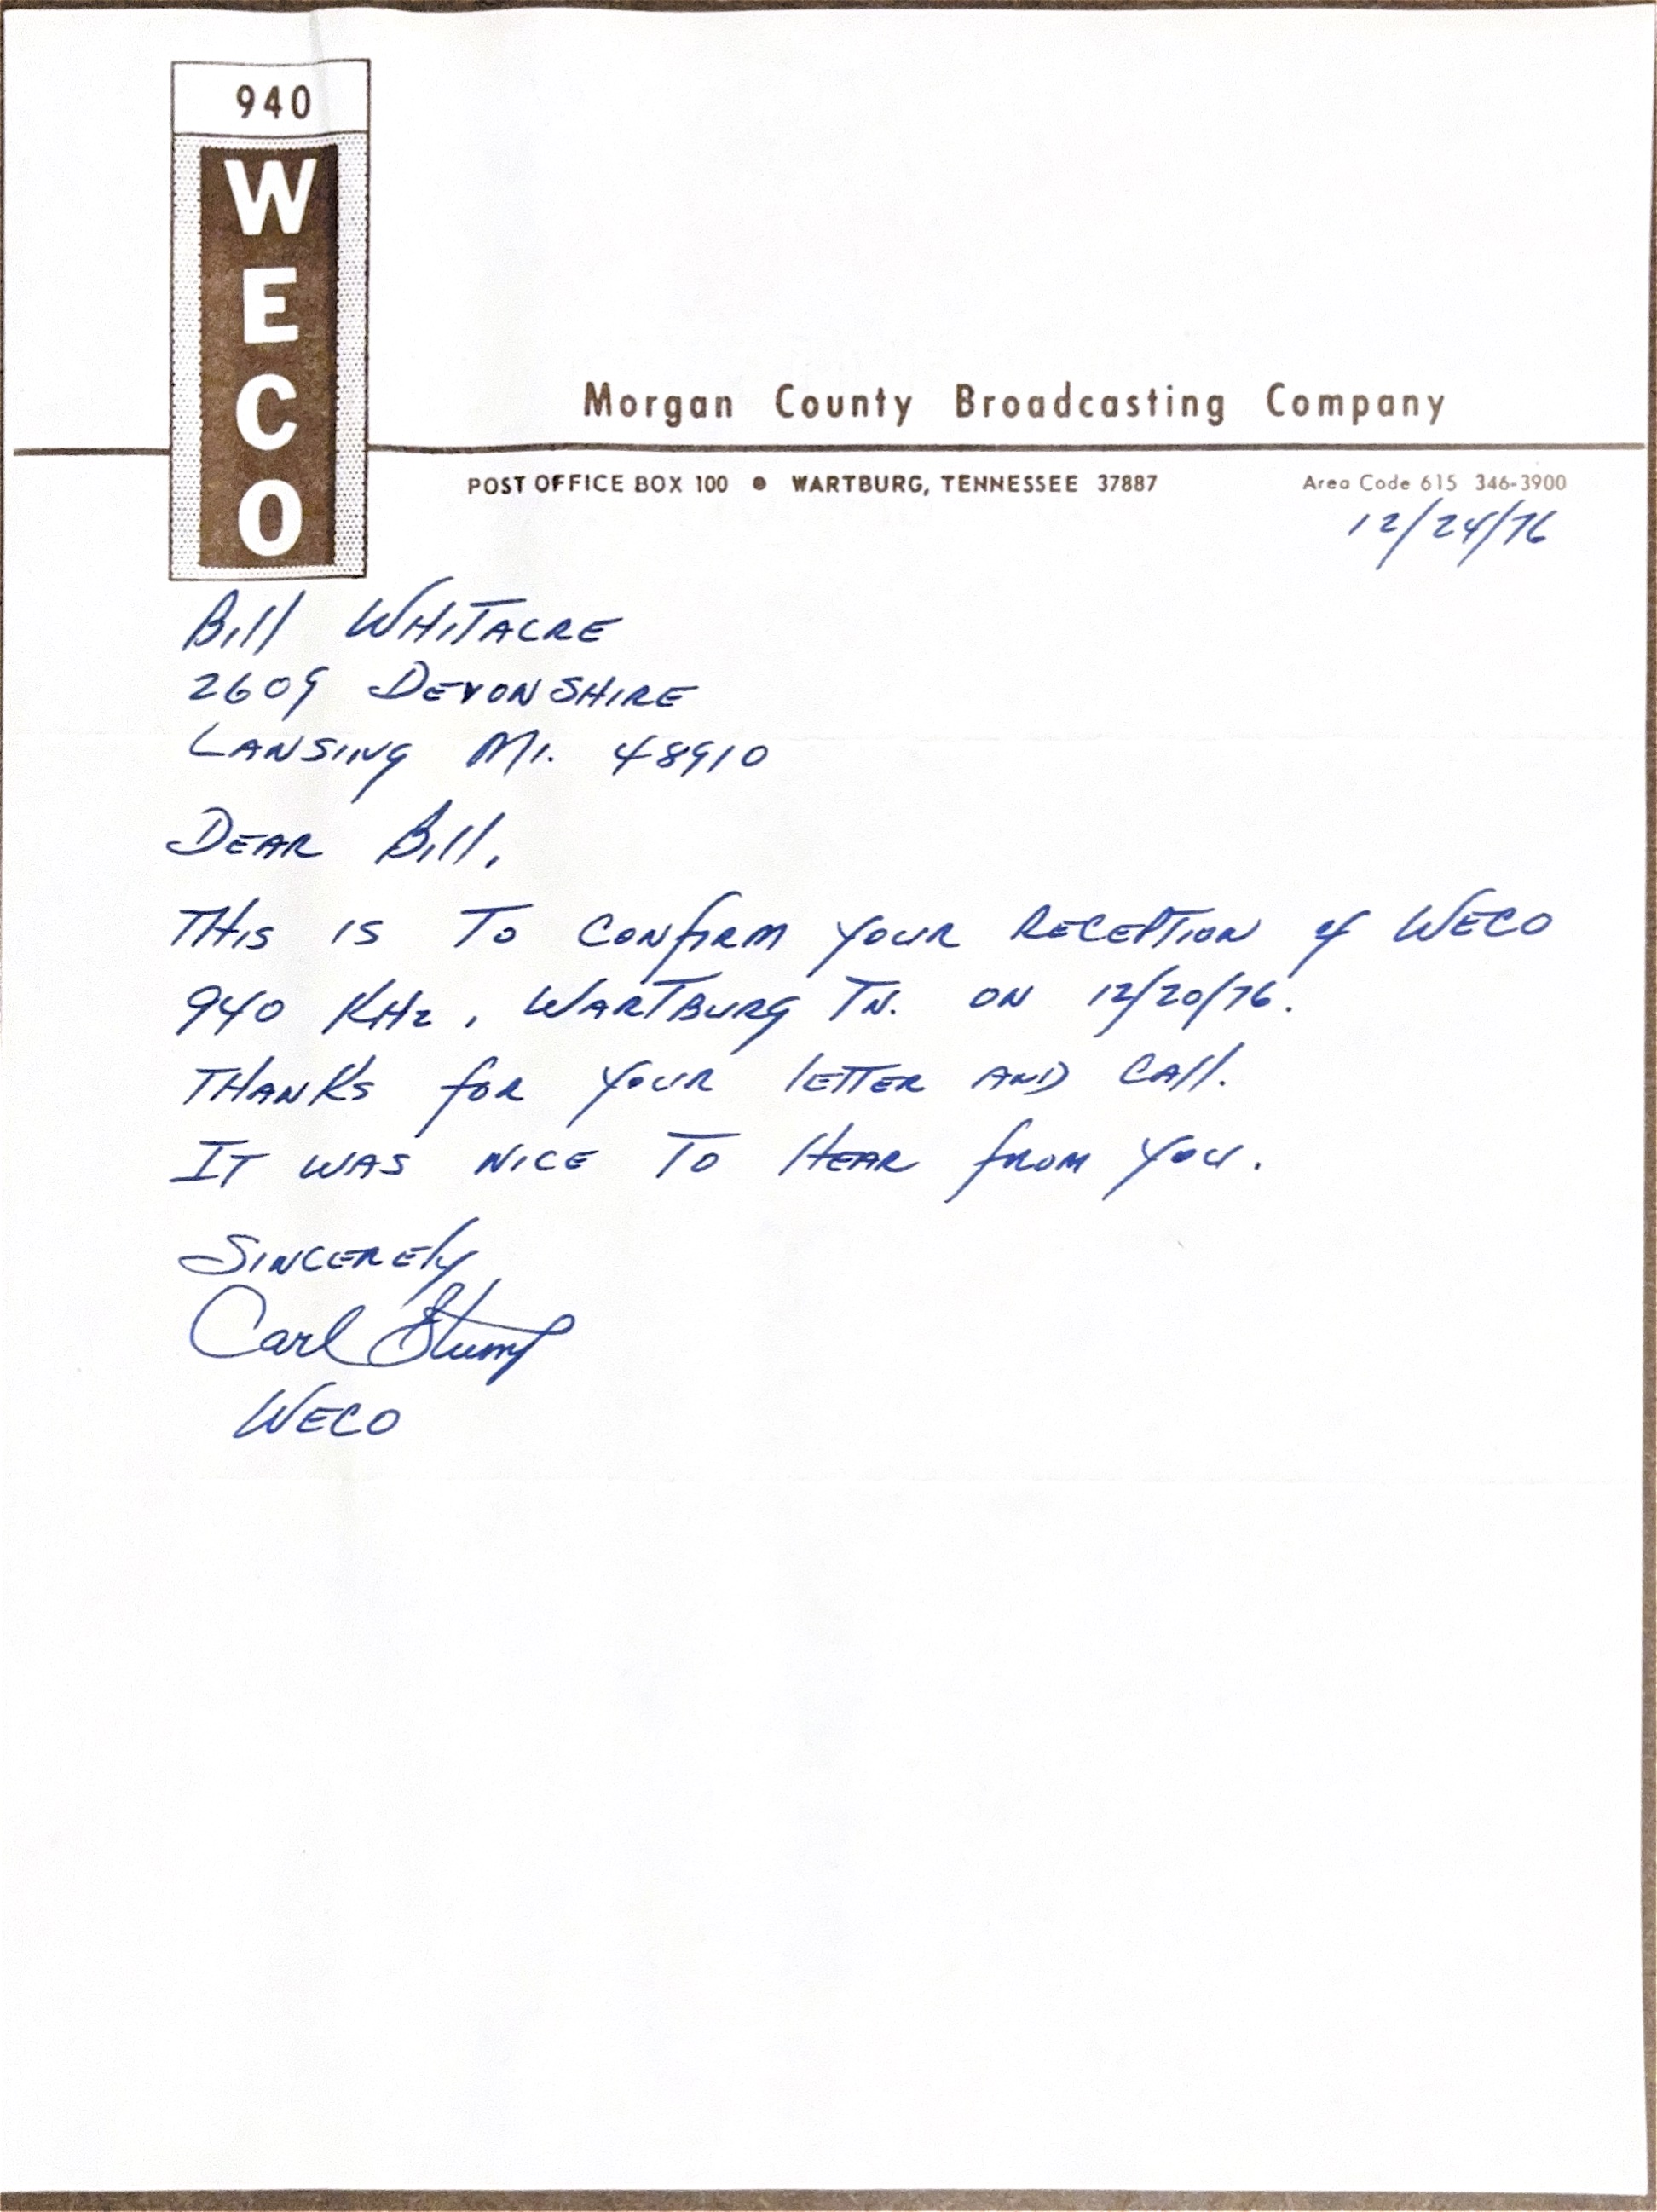 940
WECO
Morgan County Broadcasting Company
POST OFFICE BOX 100 • WARTBURG, TENNESSEE 37887 Area Code 615 346-3900
12/24/76
Bill WHITACRE
2609 DEVONSHIRE
LANSING MI. 48910
DEAR Bill,
THIS IS TO CONfIRM YOUR RECEPTION of WECO
940 KHz, WARTBURG TN. ON 12/20/76.
THANKS foR YOUR lETTER AND CAll.
IT WAS NICE TO HEAR fROM YOU.
SINCEREly
Carl Stump
WECO